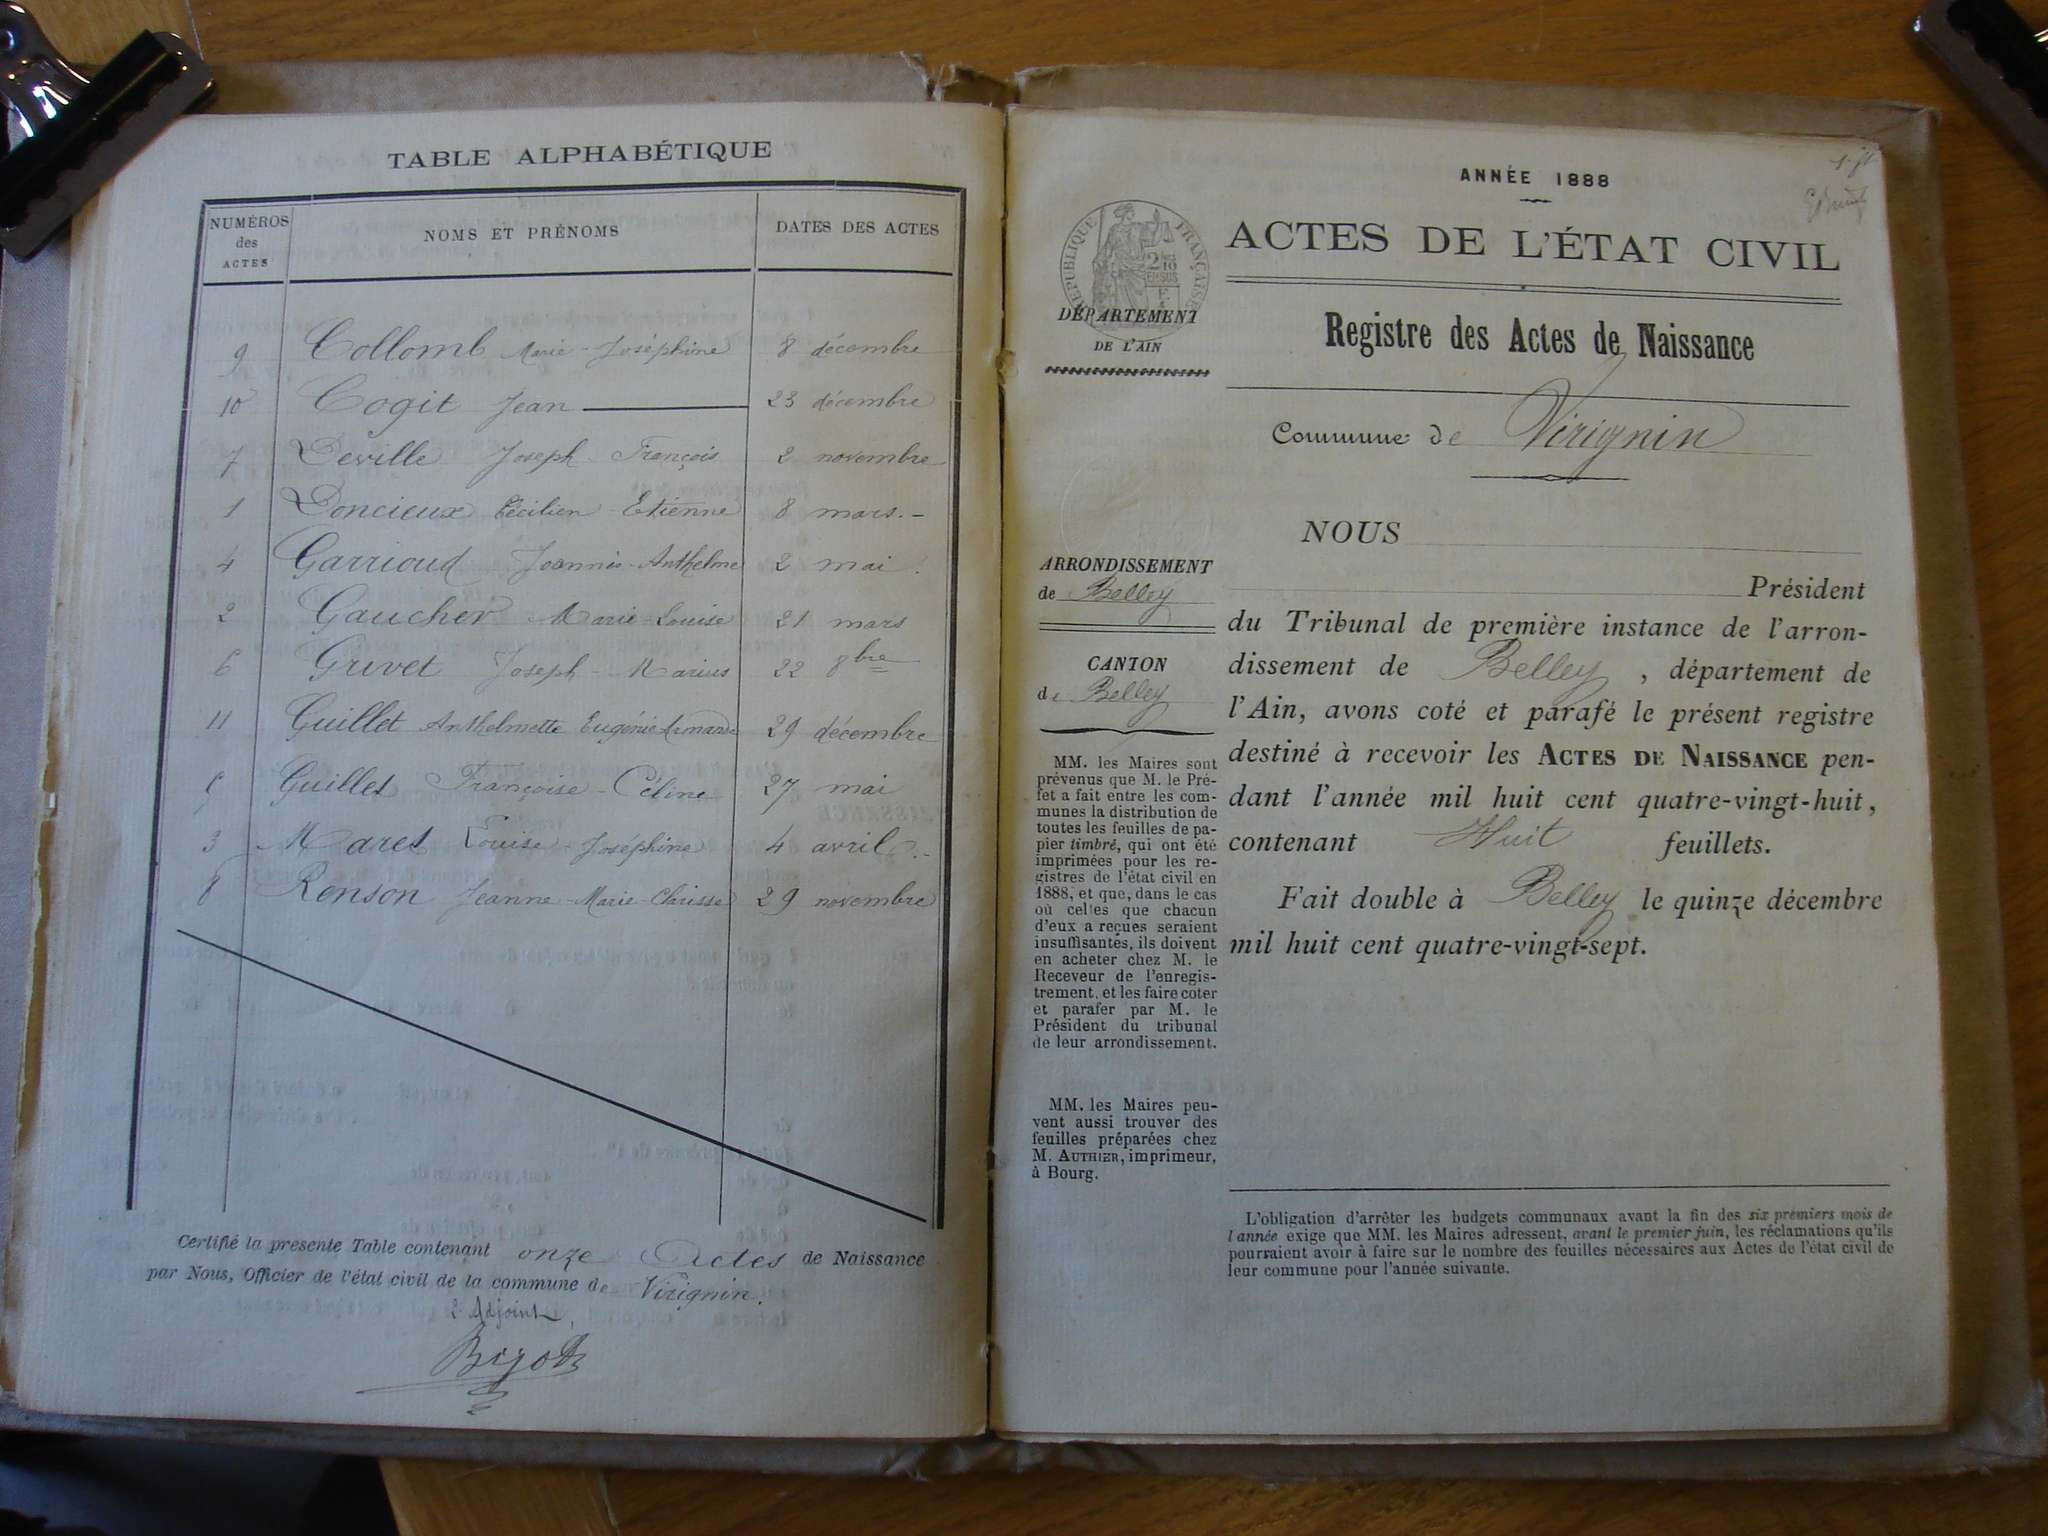 TABLE ALPHABÉTIQUE
NUMÉROS des ACTES NOMS ET PRÉNOMS DATES DES ACTES
9 Collomb Marie-Joséphine 8 décembre
10 Cogit Jean 23 décembre
7 Deville Joseph-François 2 novembre
1 Doncieux Cécilien-Etienne 8 mars.-
4 Garrioud Joannis-Anthelme 2 mai
2 Gaucher Marie-Louise 21 mars
6 Grivet Joseph-Marius 22 8bre
11 Guillet Anthelmette Eugénie Armande 29 décembre
5 Guillet Françoise-Céline 27 mai
3 Maret Louise-Joséphine 4 avril.-
8 Renson Jeanne-Marie-Clarisse 29 novembre
Certifié la présente Table contenant onze Actes de Naissance
par Nous, Officier de l'état civil de la commune de Virignin.
L'Adjoint,
Bigot
ANNÉE 1888
RÉPUBLIQUE FRANÇAISE
ACTES DE L'ÉTAT CIVIL
Registre des Actes de Naissance
DÉPARTEMENT
DE L'AIN
Commune de Virignin
ARRONDISSEMENT
de Belley
CANTON
de Belley
MM. les Maires sont
prévenus que M. le Pré-
fet a fait entre les com-
munes la distribution de
toutes les feuilles de pa-
pier timbré, qui ont été
imprimées pour les re-
gistres de l'état civil en
1888, et que, dans le cas
où celles que chacun
d'eux a reçues seraient
insuffisantes, ils doivent
en acheter chez M. le
Receveur de l'enregis-
trement, et les faire coter
et parafer par M. le
Président du tribunal
de leur arrondissement.
MM. les Maires peu-
vent aussi trouver des
feuilles préparées chez
M. AUTHIER, imprimeur,
à Bourg.
NOUS
Président
du Tribunal de première instance de l'arron-
dissement de Belley, département de
l'Ain, avons coté et parafé le présent registre
destiné à recevoir les ACTES DE NAISSANCE pen-
dant l'année mil huit cent quatre-vingt-huit,
contenant Huit feuillets.
Fait double à Belley le quinze décembre
mil huit cent quatre-vingt-sept.
L'obligation d'arrêter les budgets communaux avant la fin des six premiers mois de
l'année exige que MM. les Maires adressent, avant le premier juin, les réclamations qu'ils
pourraient avoir à faire sur le nombre des feuilles nécessaires aux Actes de l'état civil de
leur commune pour l'année suivante.